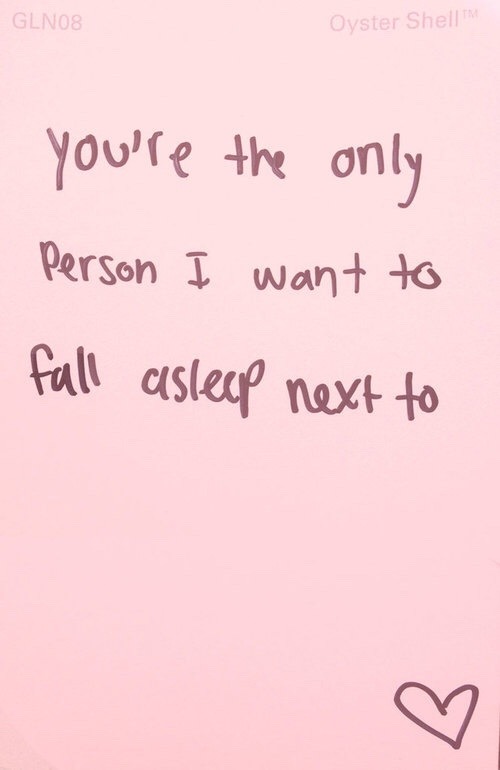 GLN08 Oyster Shell™
you're the only
Person I want to
fall asleep next to